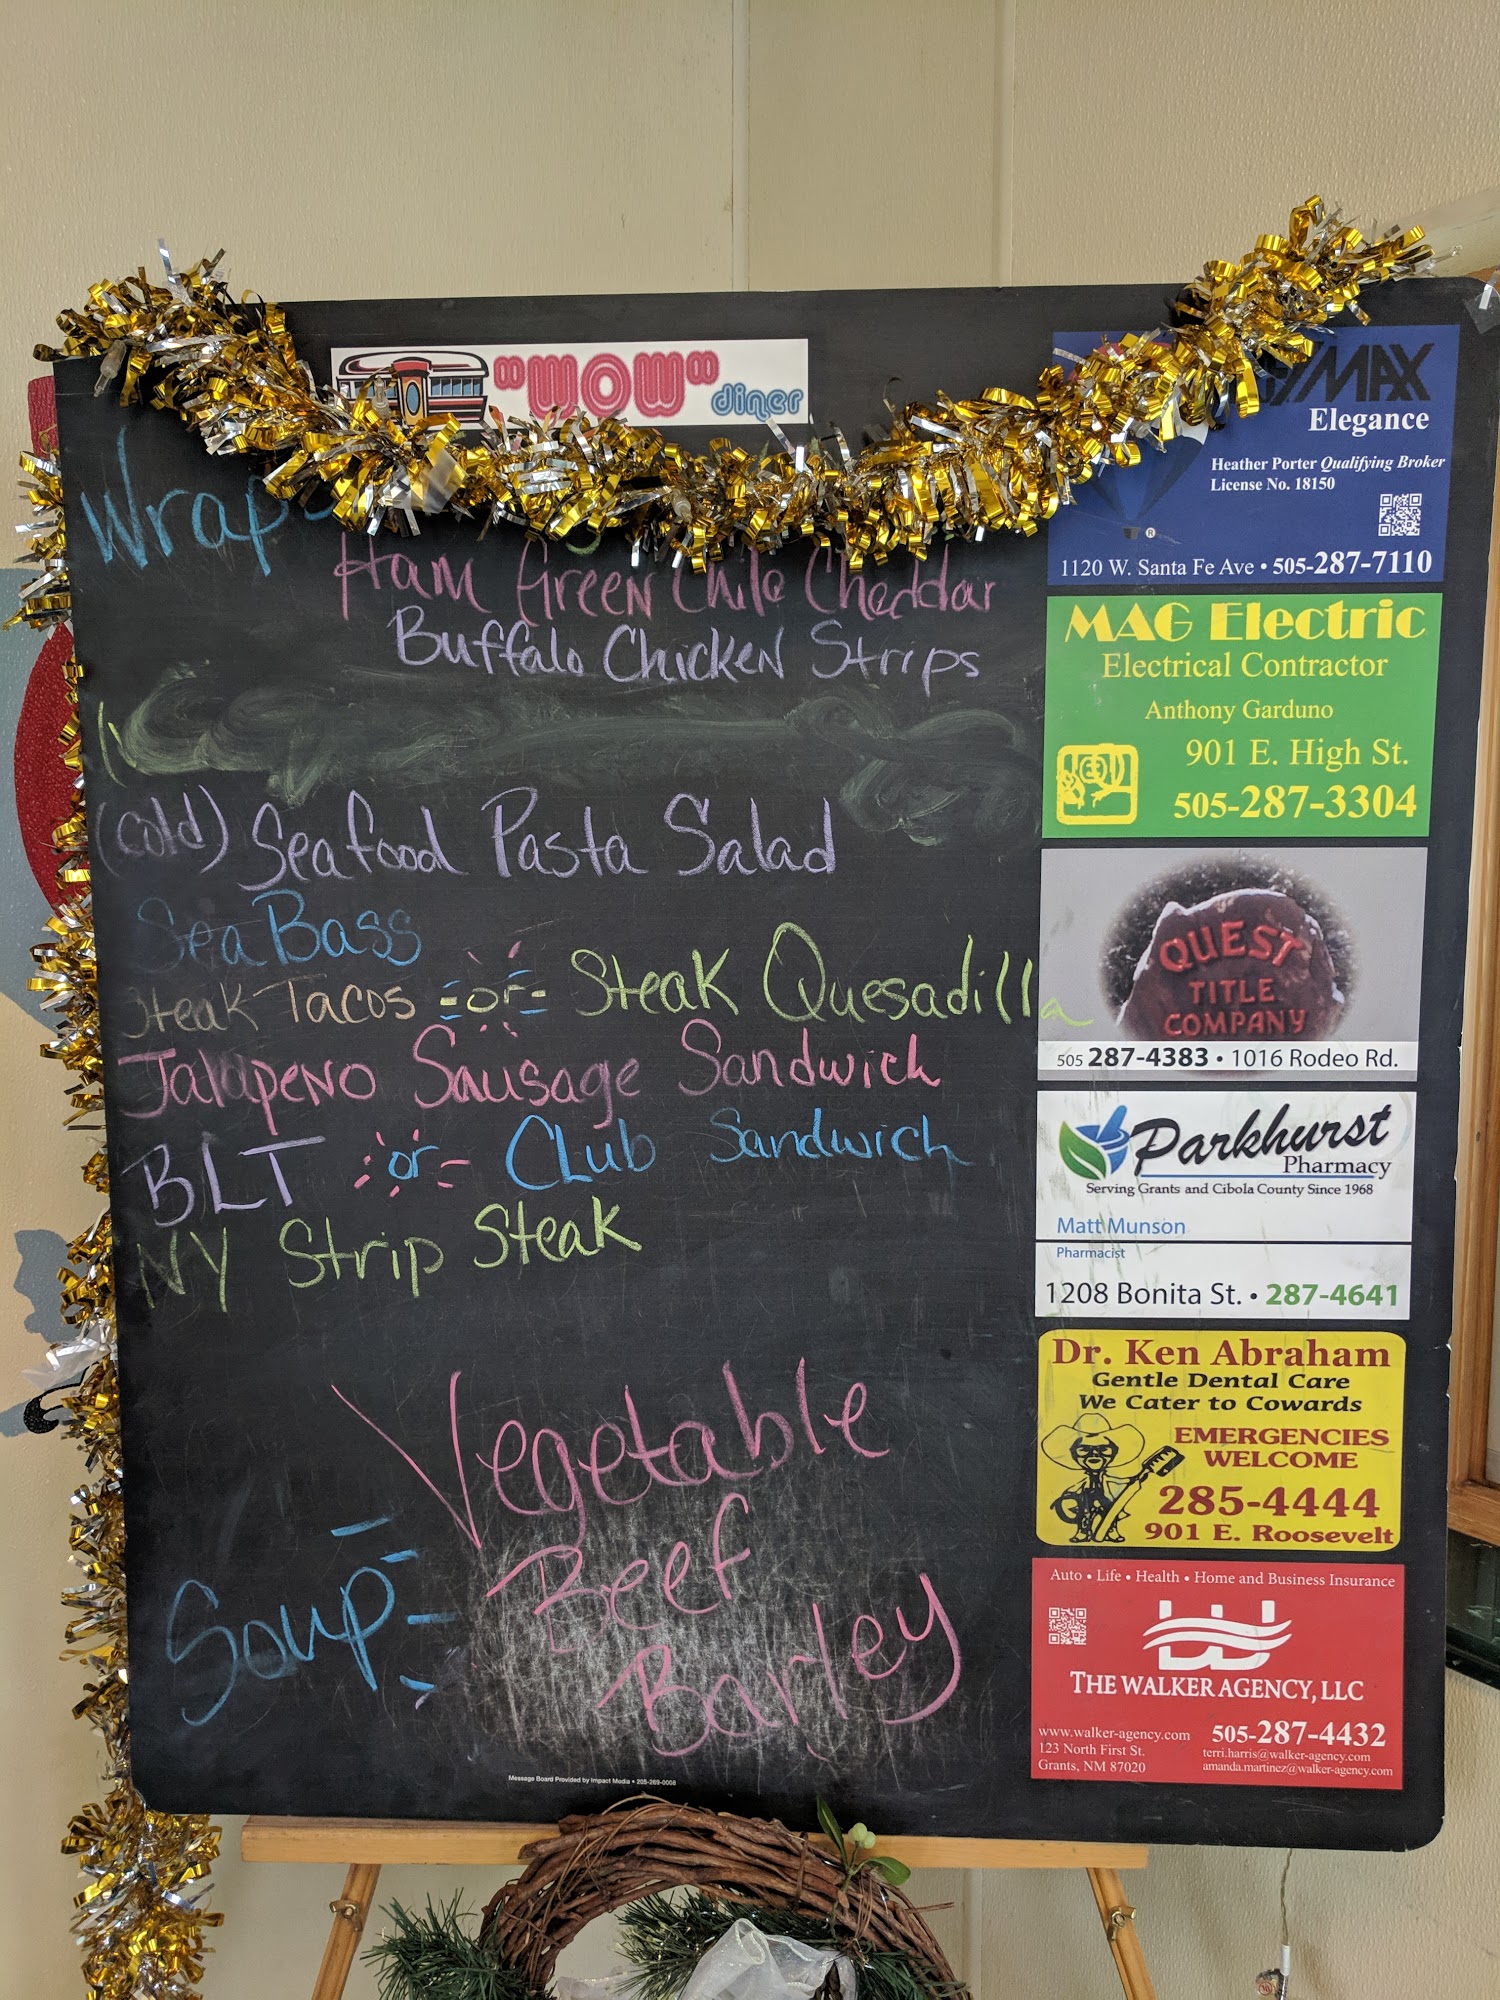 "WOW" diner
Wraps
Ham Green Chile Cheddar
Buffalo Chicken Strips
(cold) Seafood Pasta Salad
Sea Bass
Steak Tacos -or- Steak Quesadilla
Jalapeno Sausage Sandwich
BLT or Club Sandwich
NY Strip Steak
Vegetable
Beef
Barley
Soup
Message Board Provided by Impact Media • 205-269-0008
/MAX
Elegance
Heather Porter Qualifying Broker
License No. 18150
®
1120 W. Santa Fe Ave • 505-287-7110
MAG Electric
Electrical Contractor
Anthony Garduno
901 E. High St.
505-287-3304
QUEST
TITLE
COMPANY
505 287-4383 • 1016 Rodeo Rd.
Parkhurst
Pharmacy
Serving Grants and Cibola County Since 1968
Matt Munson
Pharmacist
1208 Bonita St. • 287-4641
Dr. Ken Abraham
Gentle Dental Care
We Cater to Cowards
EMERGENCIES
WELCOME
285-4444
901 E. Roosevelt
Auto • Life • Health • Home and Business Insurance
THE WALKER AGENCY, LLC
505-287-4432
www.walker-agency.com
123 North First St.
Grants, NM 87020
terri.harris@walker-agency.com
amanda.martinez@walker-agency.com